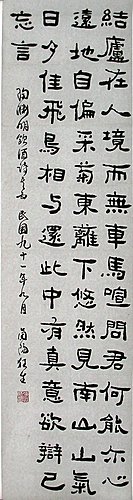 結廬在人境而無車馬喧問君何能尔心
遠地自偏采菊東籬下悠然見南山山氣
日夕佳飛鳥相与還此中有真意欲辯已
忘言
陶淵明飲酒詩之五 民國九十一年九月